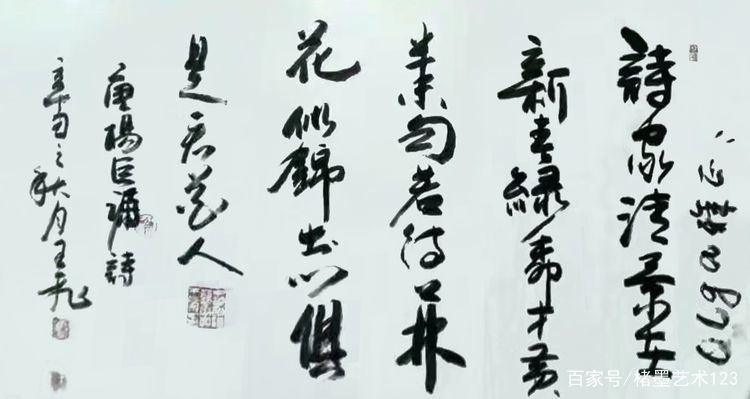 詩家清景在
新春綠柳才黃
半未勻若待上林
花似錦出門俱
是看花人
唐楊巨源詩
辛丑之秋月王飛
百家号/楮墨艺术123